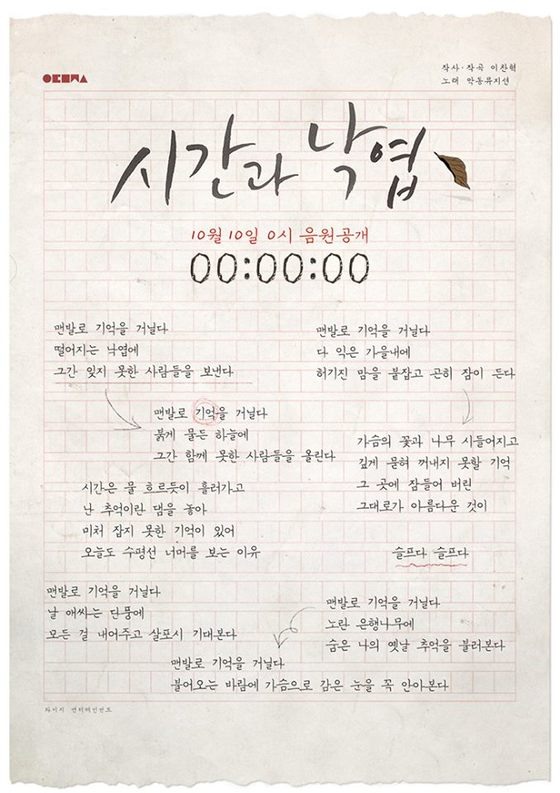 작사·작곡 이찬혁
노래 악동뮤지션
시간과 낙엽
10월 10일 0시 음원공개
00:00:00
맨발로 기억을 거닐다
떨어지는 낙엽에
그간 잊지 못한 사람들을 보낸다
맨발로 기억을 거닐다
붉게 물든 하늘에
그간 함께 못한 사람들을 올린다
시간은 물 흐르듯이 흘러가고
난 추억이란 댐을 놓아
미처 잡지 못한 기억이 있어
오늘도 수평선 너머를 보는 이유
맨발로 기억을 거닐다
날 애싸는 단풍에
모든 걸 내어주고 살포시 기대본다
맨발로 기억을 거닐다
다 익은 가을내에
허기진 맘을 붙잡고 곤히 잠이 든다
가슴의 꽃과 나무 시들어지고
깊게 묻혀 꺼내지 못할 기억
그 곳에 잠들어 버린
그대로가 아름다운 것이
슬프다 슬프다
맨발로 기억을 거닐다
노란 은행나무에
숨은 나의 옛날 추억을 불러본다
맨발로 기억을 거닐다
불어오는 바람에 가슴으로 감은 눈을 꼭 안아본다
와이지 엔터테인먼트